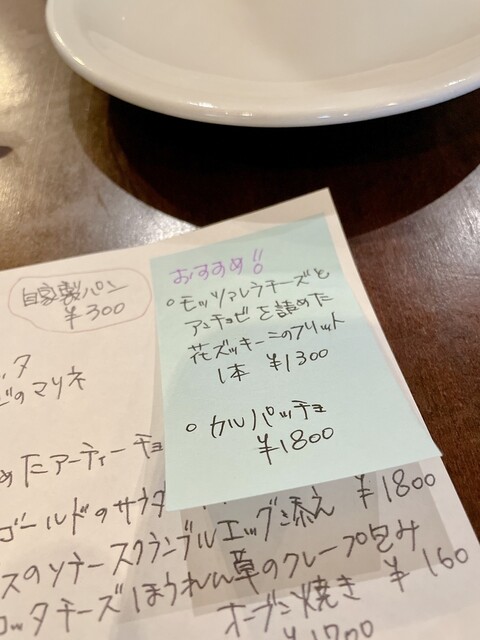 自家製パン
¥300
おすすめ!!
○モッツァレラチーズと
アンチョビを詰めた
花ズッキーニのフリット
1本 ¥1300
○カルパッチョ
¥1800
ッタ
ビのマリネ
めたアーティーチョ
ゴールドのサラダ
スのソテースクランブルエッグ添え ¥1800
コッタチーズほうれん草のクレープ包み
オーブン焼き ¥160